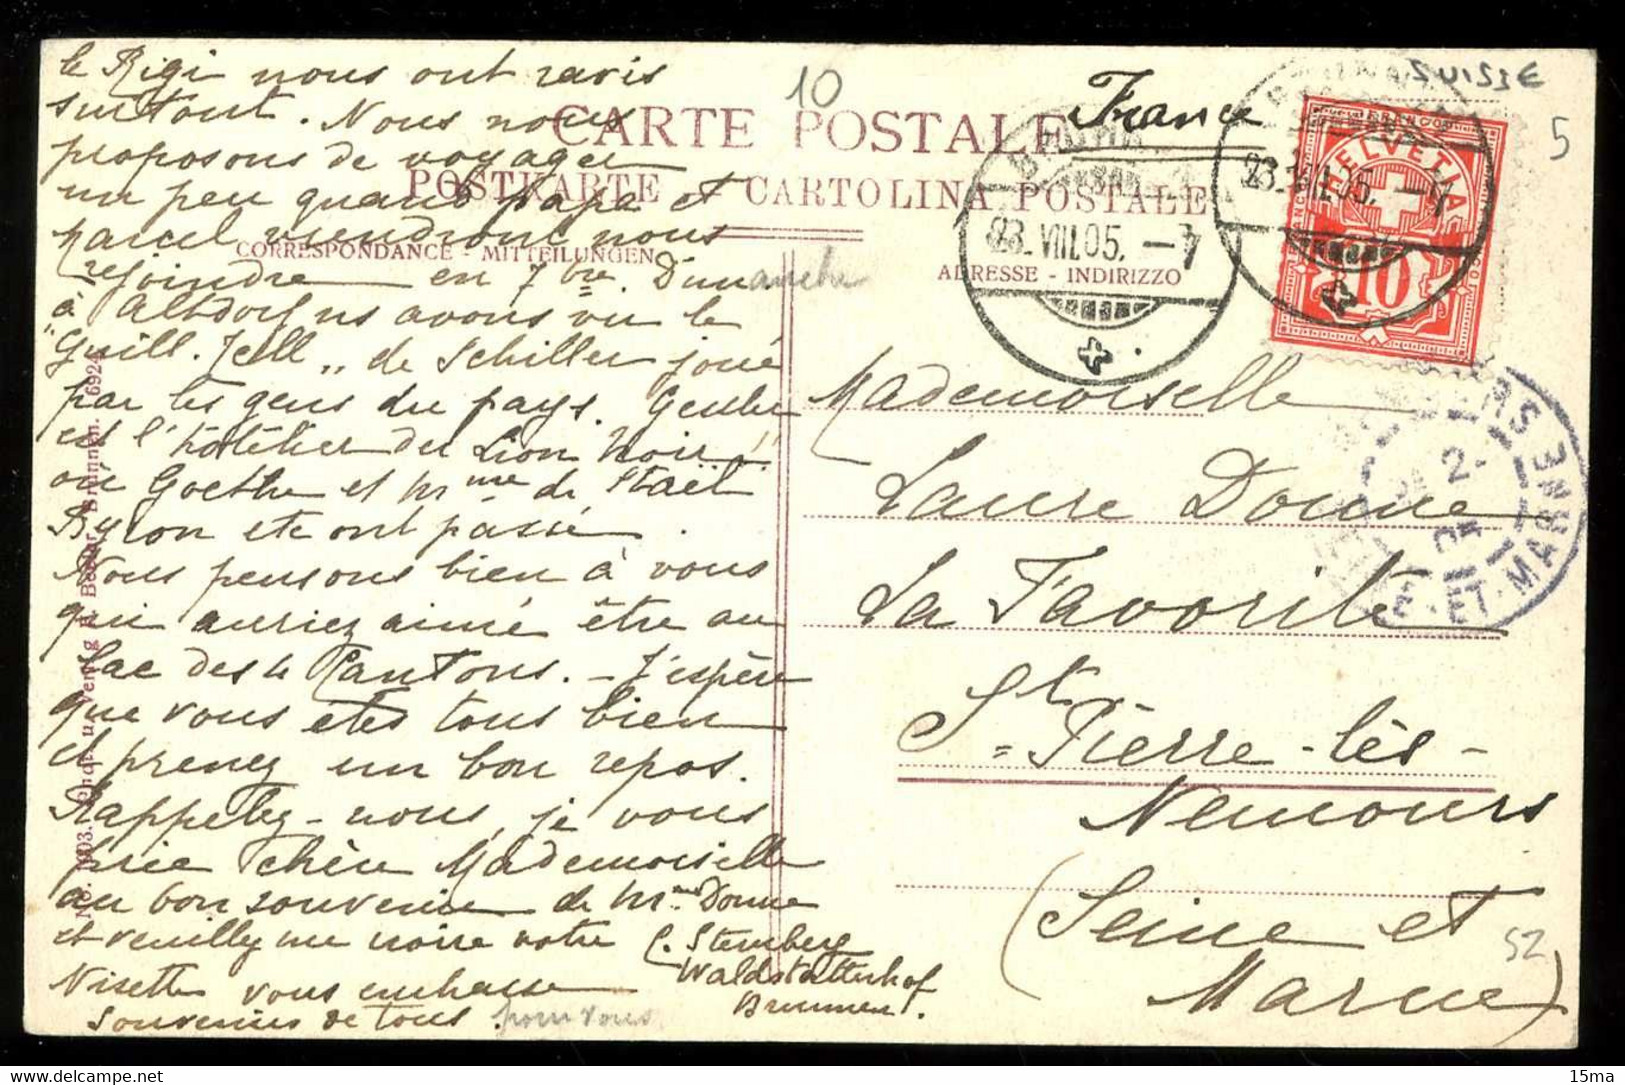 le Rigi nous ont ravis
surtout. Nous nous
proposons de voyager
un peu quand papa et
Marcel viendront nous
rejoindre en 7bre. Dimanche
à Altdorf ns avons vu le
"Guill. Tell „ de Schiller joué
par les gens du pays. Gessler
est l'hôtelier du Lion Noir!!
où Goethe et Mme de Staël
Byron etc ont passé.
Nous pensons bien à vous
qui auriez aimé être au
Lac des 4 Cantons. - J'espère
que vous etes tous bien
et prenez un bon repos.
Rappelez-nous, je vous
prie chère Mademoiselle
au bon souvenir de Mme Donne
et veuillez me croire votre
C. Sternberg
Waldstätterhof
Brunnen.
Nisette vous embrasse
souvenirs de tous. pour vous
CARTE POSTALE
POSTKARTE - CARTOLINA POSTALE
CORRESPONDANCE - MITTEILUNGEN
ADRESSE - INDIRIZZO
No. 1003. Druck u. Verlag Brunnen. 692
10
France
SUISSE
5
23. VIII.05. -7
23. VIII.05. -7
HELVETIA
FRANCO
10
Mademoiselle
Laure Donne
La Favorite
St Pierre-lès-
Nemours
(Seine et
Marne)
ET-MARNE
52
15ma